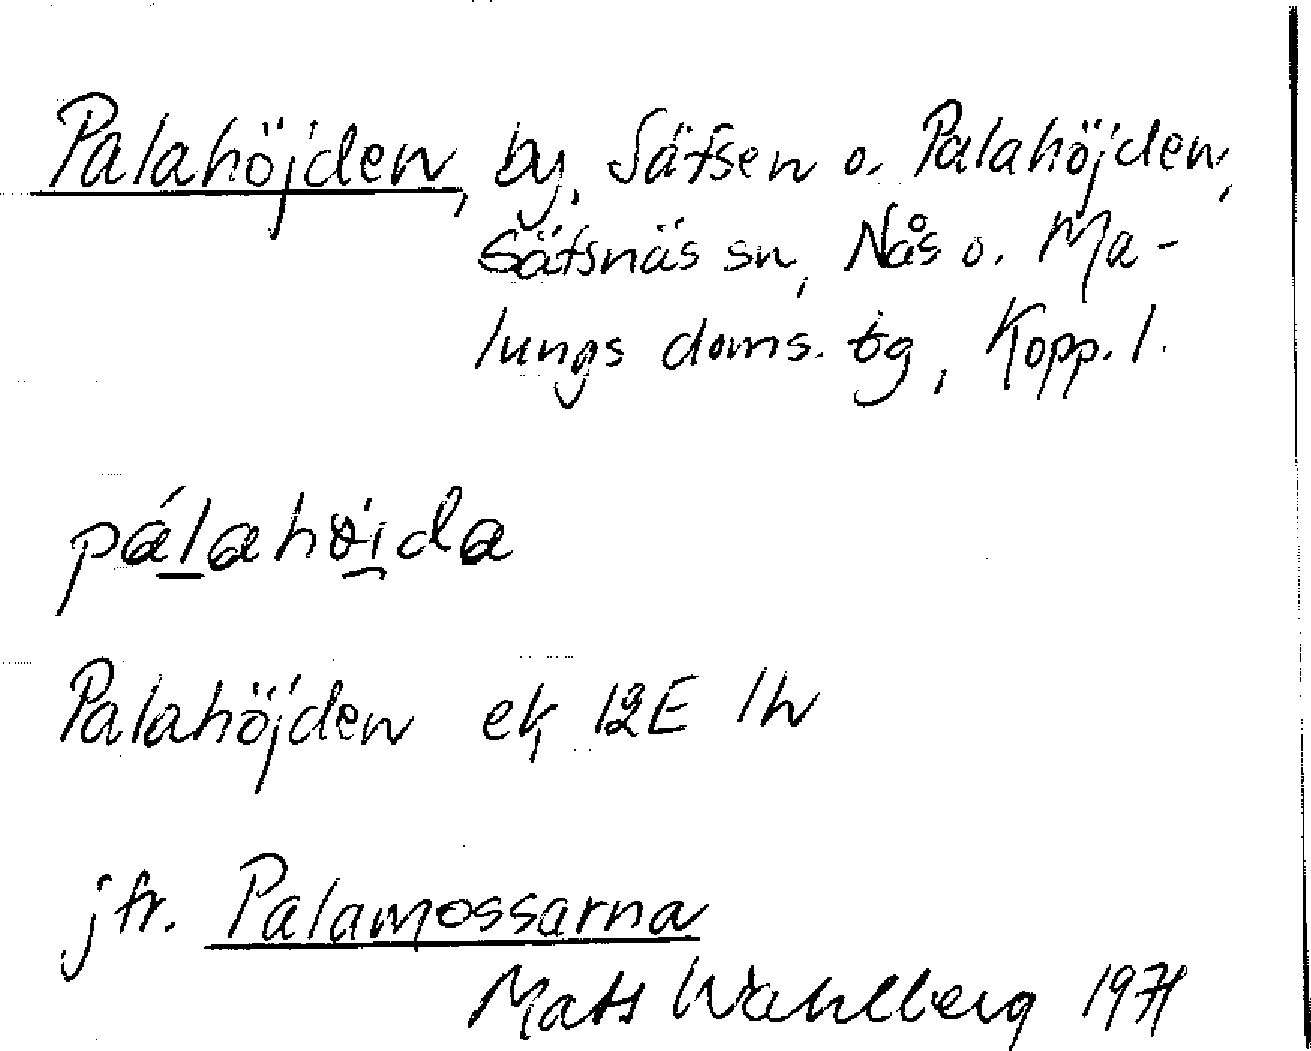 Palahöjden, by, Säfsen o. Palahöjden,
Säfsnäs sn, Nås o. Ma-
lungs doms. tg, Kopp. l.
pálahöi̯da
Palahöjden ek, 12E 1h
jfr. Palamossarna
Mats Wahlberg 1971